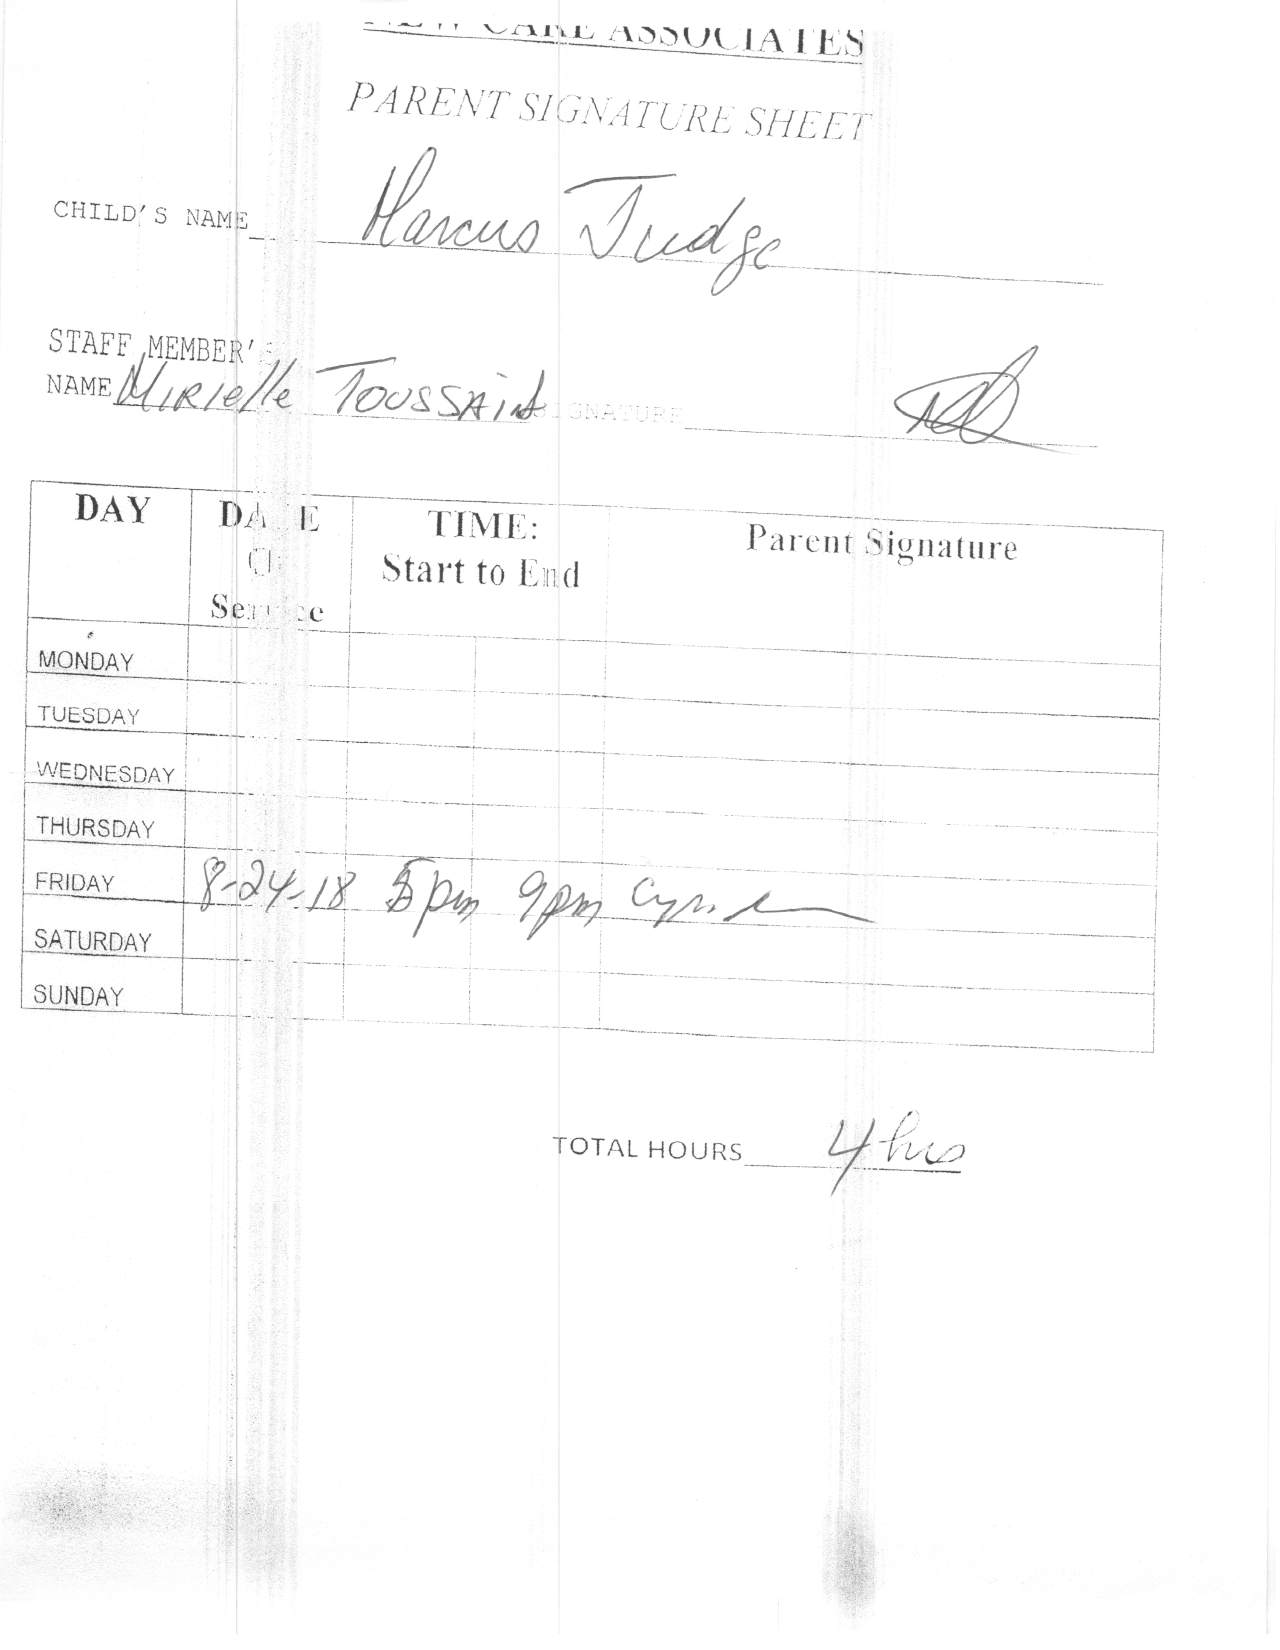 NEW CARE ASSOCIATES
PARENT SIGNATURE SHEET
CHILD'S NAME Marcus Judge
STAFF MEMBER'S
NAME Mirielle Toussaint SIGNATURE
DAY DATE Of Service TIME: Start to End Parent Signature
MONDAY
TUESDAY
WEDNESDAY
THURSDAY
FRIDAY 8-24-18 5pm 9pm
SATURDAY
SUNDAY
TOTAL HOURS 4hrs